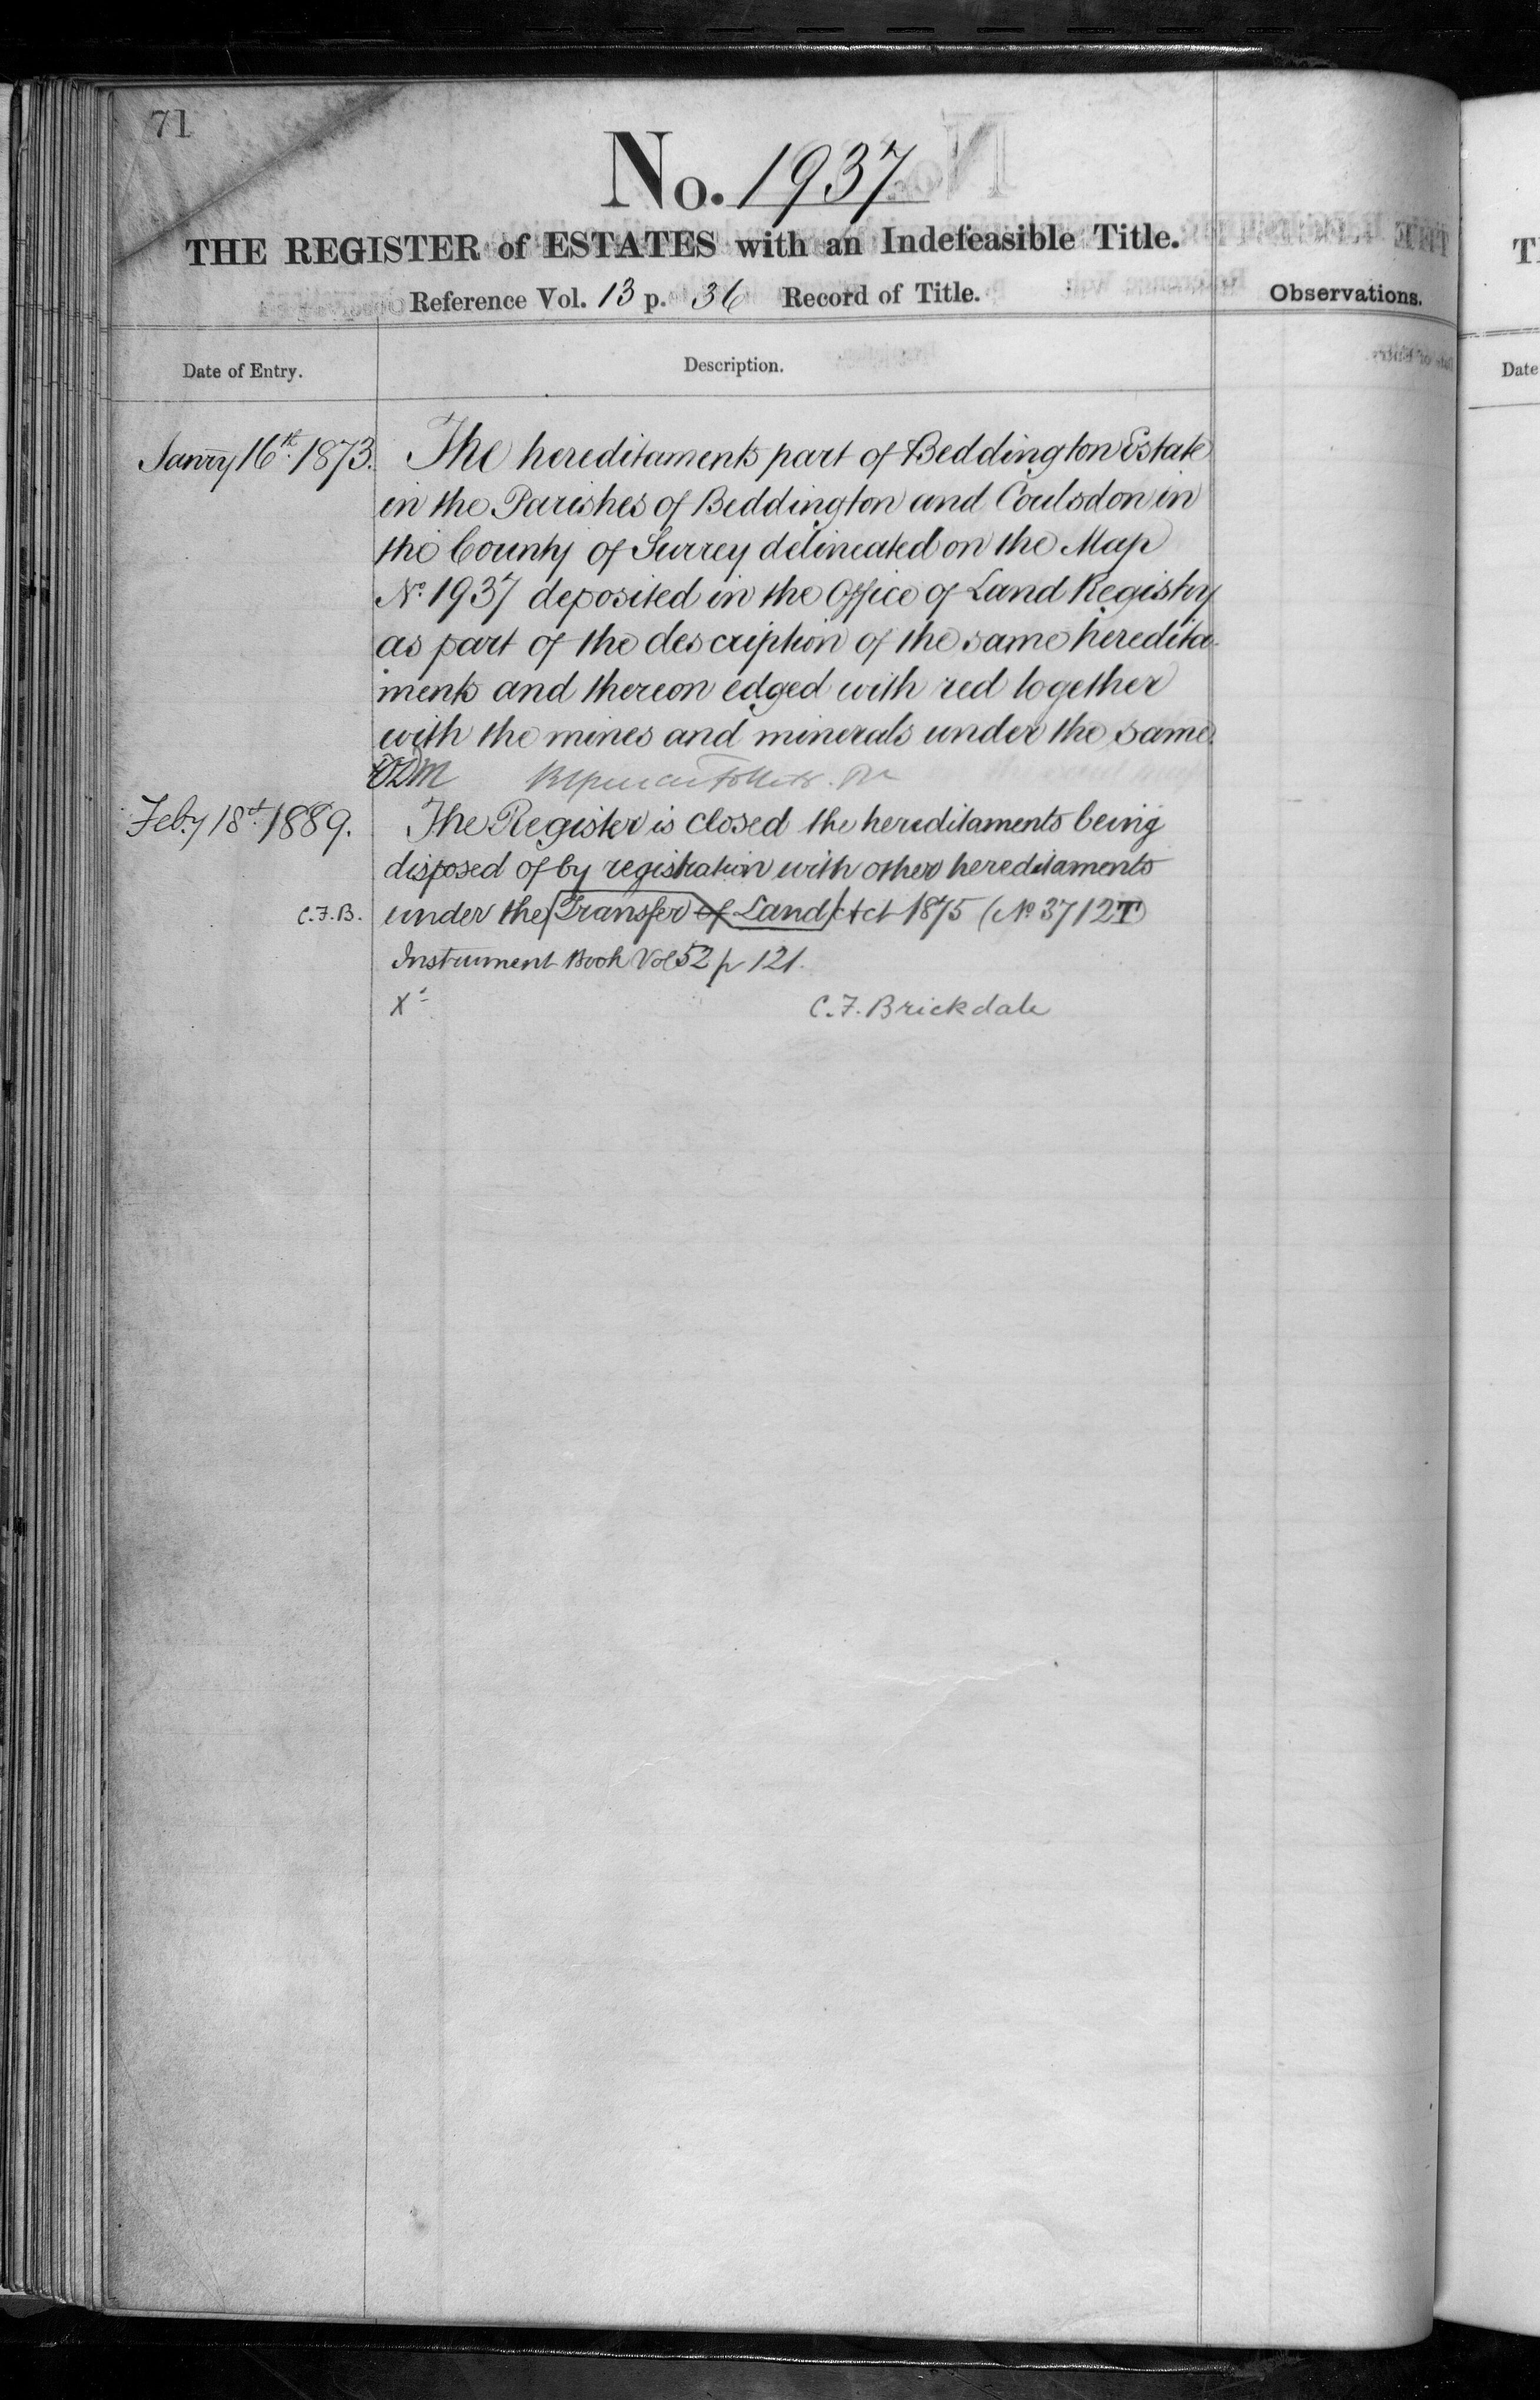 71
No. 1937
THE REGISTER of ESTATES with an Indefeasible Title.
Reference Vol. 13 p. 36 Record of Title.
Observations.
Date of Entry.
Description.
Janry 16th 1873.
The hereditaments part of Beddington Estate
in the Parishes of Beddington and Coulsdon in
the County of Surrey delineated on the Map
No. 1937 deposited in the Office of Land Registry
as part of the description of the same heredita-
ments and thereon edged with red together
with the mines and minerals under the same.
Feby 18th 1889.
The Register is closed the hereditaments being
disposed of by registration with other hereditaments
C.F.B.
under the Transfer of Land Act 1875 (No. 3712T)
Instrument Book Vol 52 p 121.
C.F. Brickdale
Date